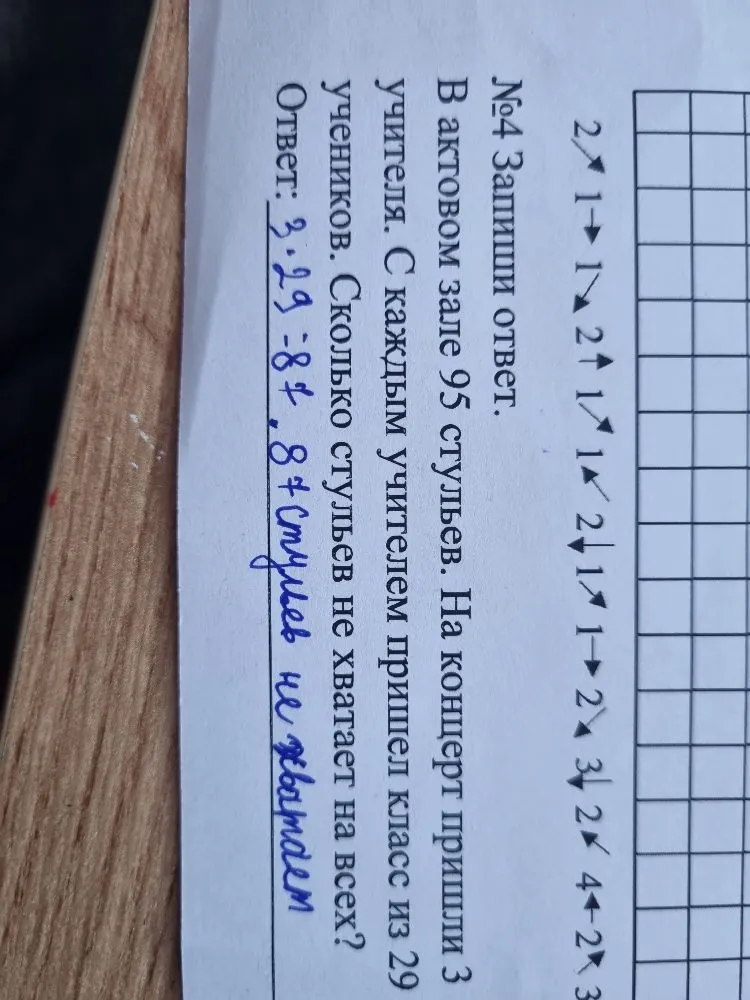 2↗ 1→ 1↘ 2↑ 1↗ 1↙ 2↓ 1↗ 1→ 2↘ 3↓ 2↙ 4← 2↖ 3
№4 Запиши ответ.
В актовом зале 95 стульев. На концерт пришли 3
учителя. С каждым учителем пришел класс из 29
учеников. Сколько стульев не хватает на всех?
Ответ: 3·29=87. 87 стульев не хватает